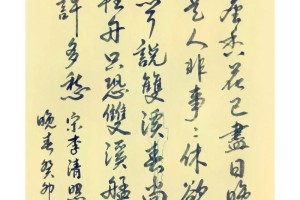 塵香花已盡日晚
是人非事々休欲
聞說雙溪春尚
輕舟只恐雙溪舴
許多愁 宋李清照
晚春癸卯